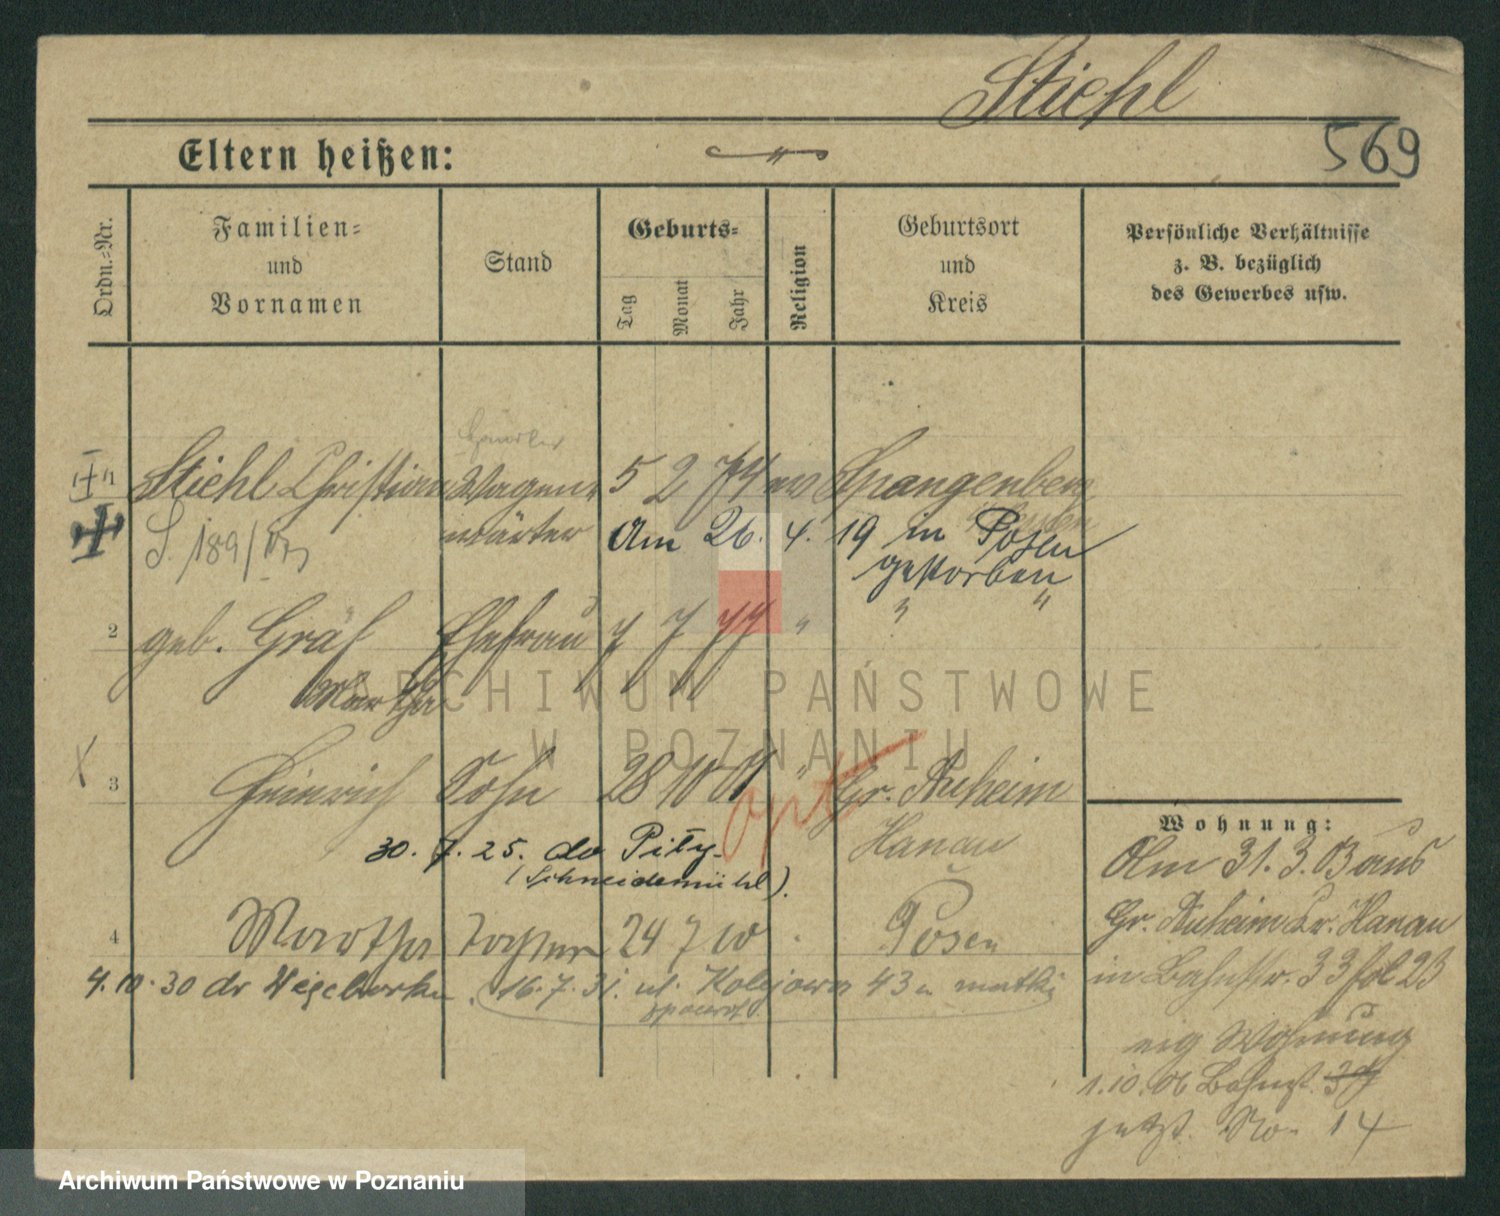 Stiehl
569
Eltern heißen:
Ordn.-Nr.
Familien-
und
Vornamen
Stand
Geburts-
Tag
Monat
Jahr
Religion
Geburtsort
und
Kreis
Persönliche Verhältnisse
z. B. bezüglich
des Gewerbes usw.
Stiehl Christian Wagen- 5 2 74 ev Spangenberg
S. 189/ wärter Am 26. 4. 19 in Posen
gestorben
2 geb. Gräf Ehefrau 7 7 77 " " "
Martha
3 Heinrich Sohn 28 10 01 " Gr. Auheim
opt
Hanau
30. 7. 25. do Piły
(Schneidemühl).
4 Martha Tochter 24 7 10 Posen
4.10.30 dr 16.7.31. ul. Kolejowa 43 u matki
spowrot
Wohnung:
Am 31.3.03 aus
Gr. Auheim Kr. Hanau
in Bahnstr. 33 fol 23
eig Wohnung
1.10.06 Bahnst. 39
jetzt No 14
ARCHIWUM PAŃSTWOWE
W POZNANIU
Archiwum Państwowe w Poznaniu